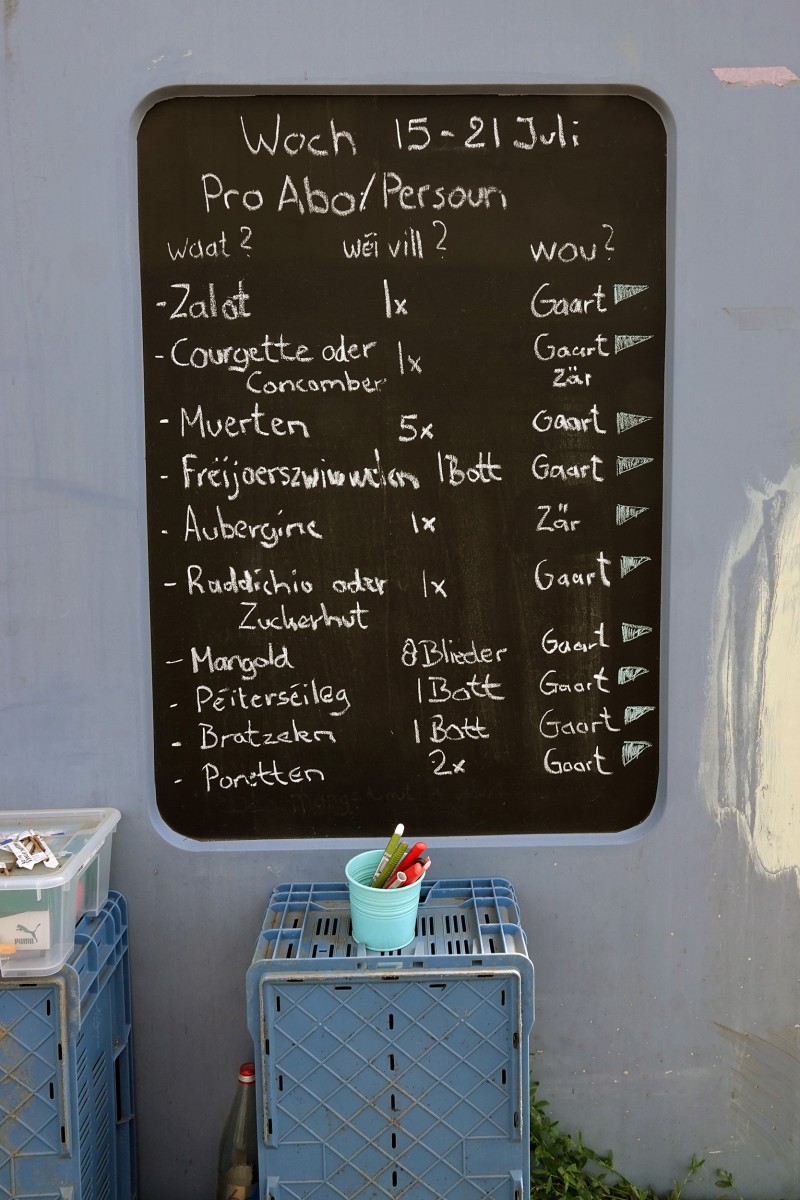 Woch 15-21 Juli
Pro Abo/Persoun
waat? wéi vill? wou?
-Zalot 1x Gaart
- Courgette oder 1x Gaart
Concomber Zär
- Muerten 5x Gaart
- Fréijoerszwiwwelen 1Bott Gaart
- Aubergine 1x Zär
- Raddichio oder 1x Gaart
Zuckerhut
- Mangold 8Blieder Gaart
- Péiterséileg 1Bott Gaart
- Bratzelen 1Bott Gaart
- Poretten 2x Gaart
PUMA